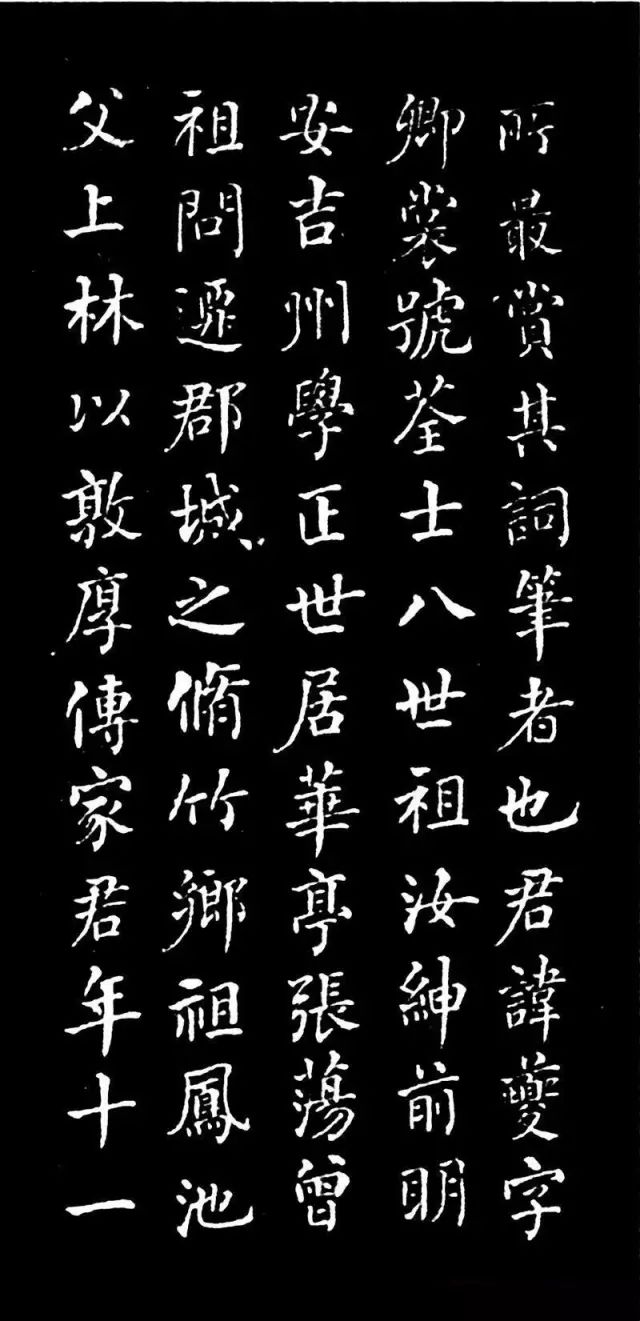 所最賞其詞筆者也君諱夔字
卿裳號荃士八世祖汝紳前明
安吉州學正世居華亭張蕩曾
祖問遷郡城之脩竹鄉祖鳳池
父上林以敦厚傳家君年十一